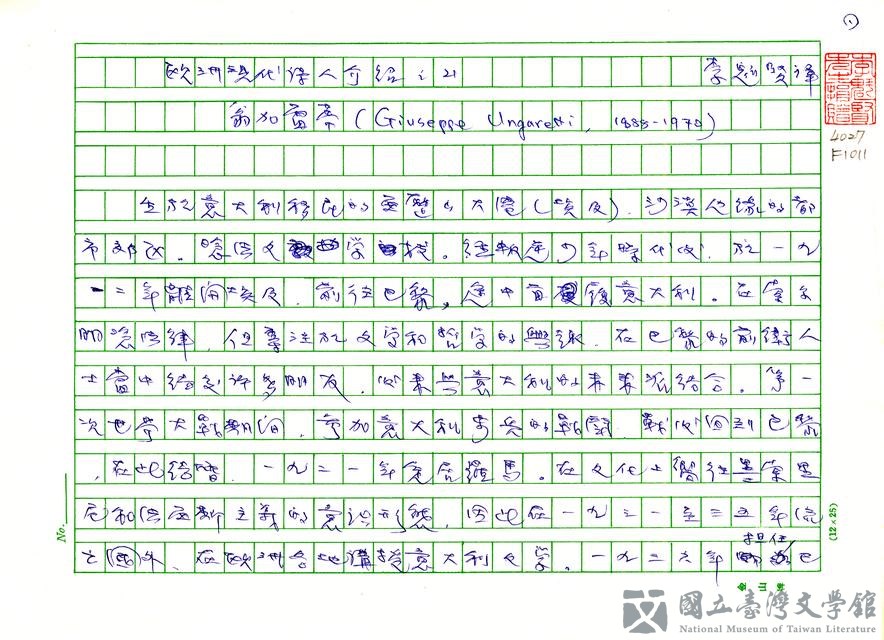 (1)
歐洲現代詩人介紹之21 李魁賢譯
翁加雷蒂 (Giuseppe Ungaretti, 1888-1970)
4027
F1011
生於意大利移民的亞歷山大港(埃及).沙漠邊緣的都
市郊區。唸法文學校。經動盪少年時代後.於一九
一二年離開埃及.前往巴黎,途中首度後意大利。在索爾
朋唸法律.但專注於文學和哲學的興趣.在巴黎的前衛人
士當中結交許多朋友.後來與意大利的未來派結合。第一
次世界大戰期間.參加意大利步兵的戰鬪.戰後回到巴黎
.在此結婚.一九二一年定居羅馬。在文化上嚮往墨索里
尼和法西斯主義的意識形態.因此在一九三一至三五年
之國外.在歐洲各地講授意大利文學。一九三六年擔任巴
No.
(12×25)
國立臺灣文學館
National Museum of Taiwan Literature